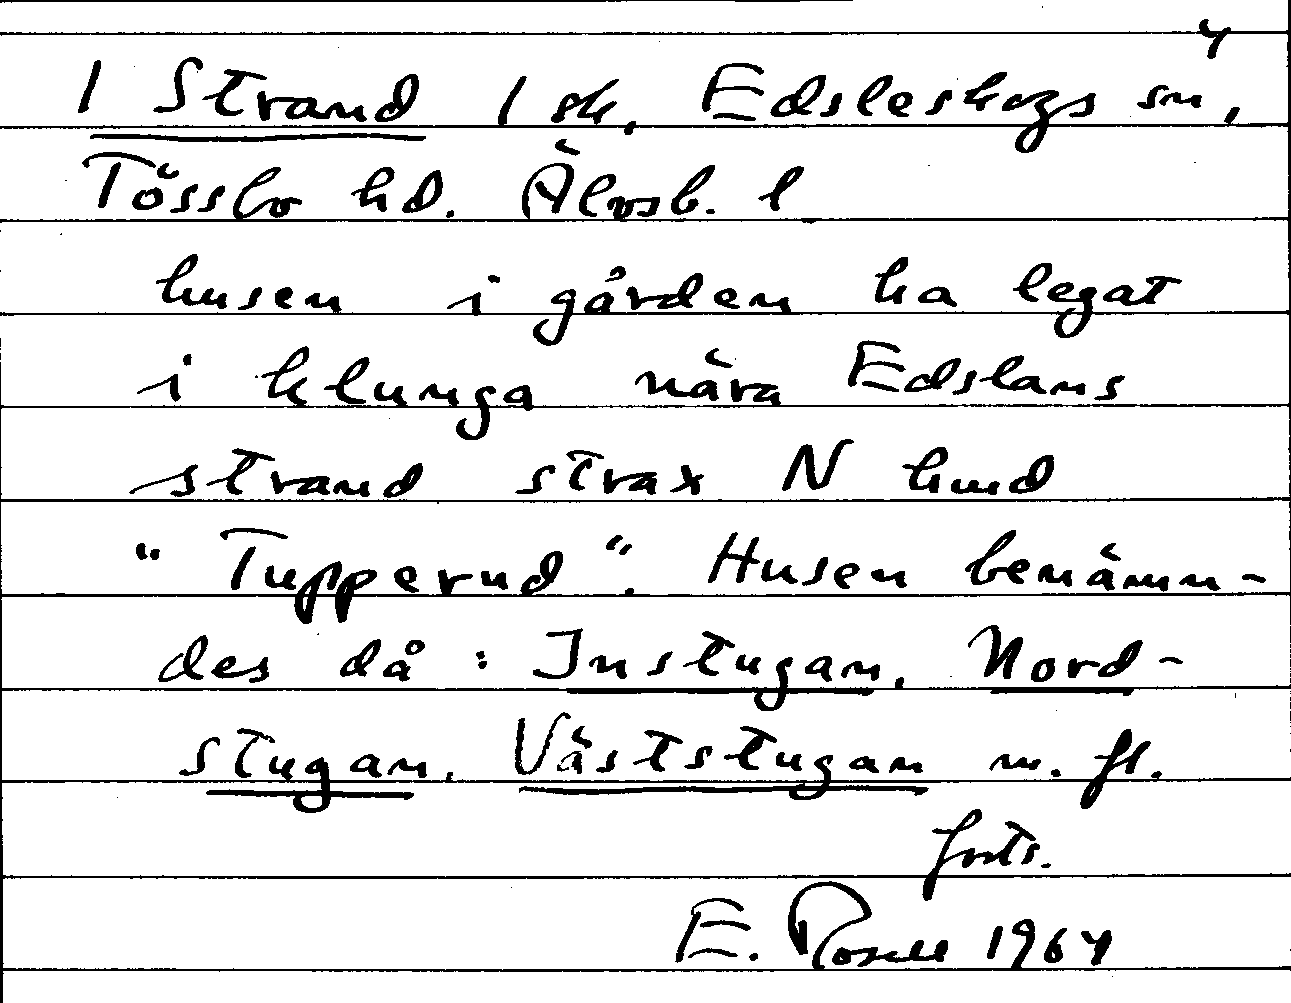 4
1 Strand 1 sk, Edsleskogs sn,
Tössbo hd. Älvsb. l
husen i gården ha legat
i klunga nära Edslans
strand strax N hmd
"Tupperud". Husen benämn-
des då: Instugan, Nord-
stugan, Väststugan m. fl.
forts.
E. Rosell 1964